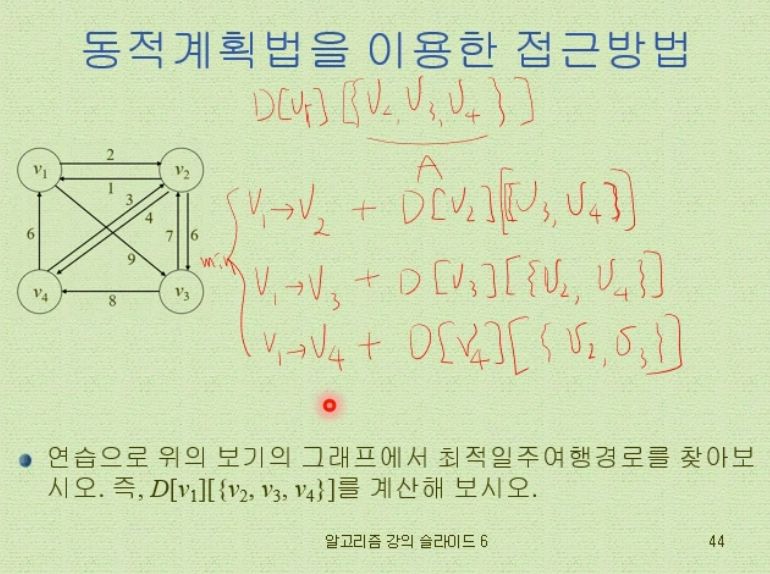 동적계획법을 이용한 접근방법
D[v₁][{v₂, v₃, v₄}]
A
v₁ 2 v₂
1
3
4
6 7 6
9
v₄ 8 v₃
min
v₁→v₂ + D[v₂][{v₃, v₄}]
v₁→v₃ + D[v₃][{v₂, v₄}]
v₁→v₄ + D[v₄][{v₂, v₃}]
연습으로 위의 보기의 그래프에서 최적일주여행경로를 찾아보
시오. 즉, D[v₁][{v₂, v₃, v₄}]를 계산해 보시오.
알고리즘 강의 슬라이드 6
44